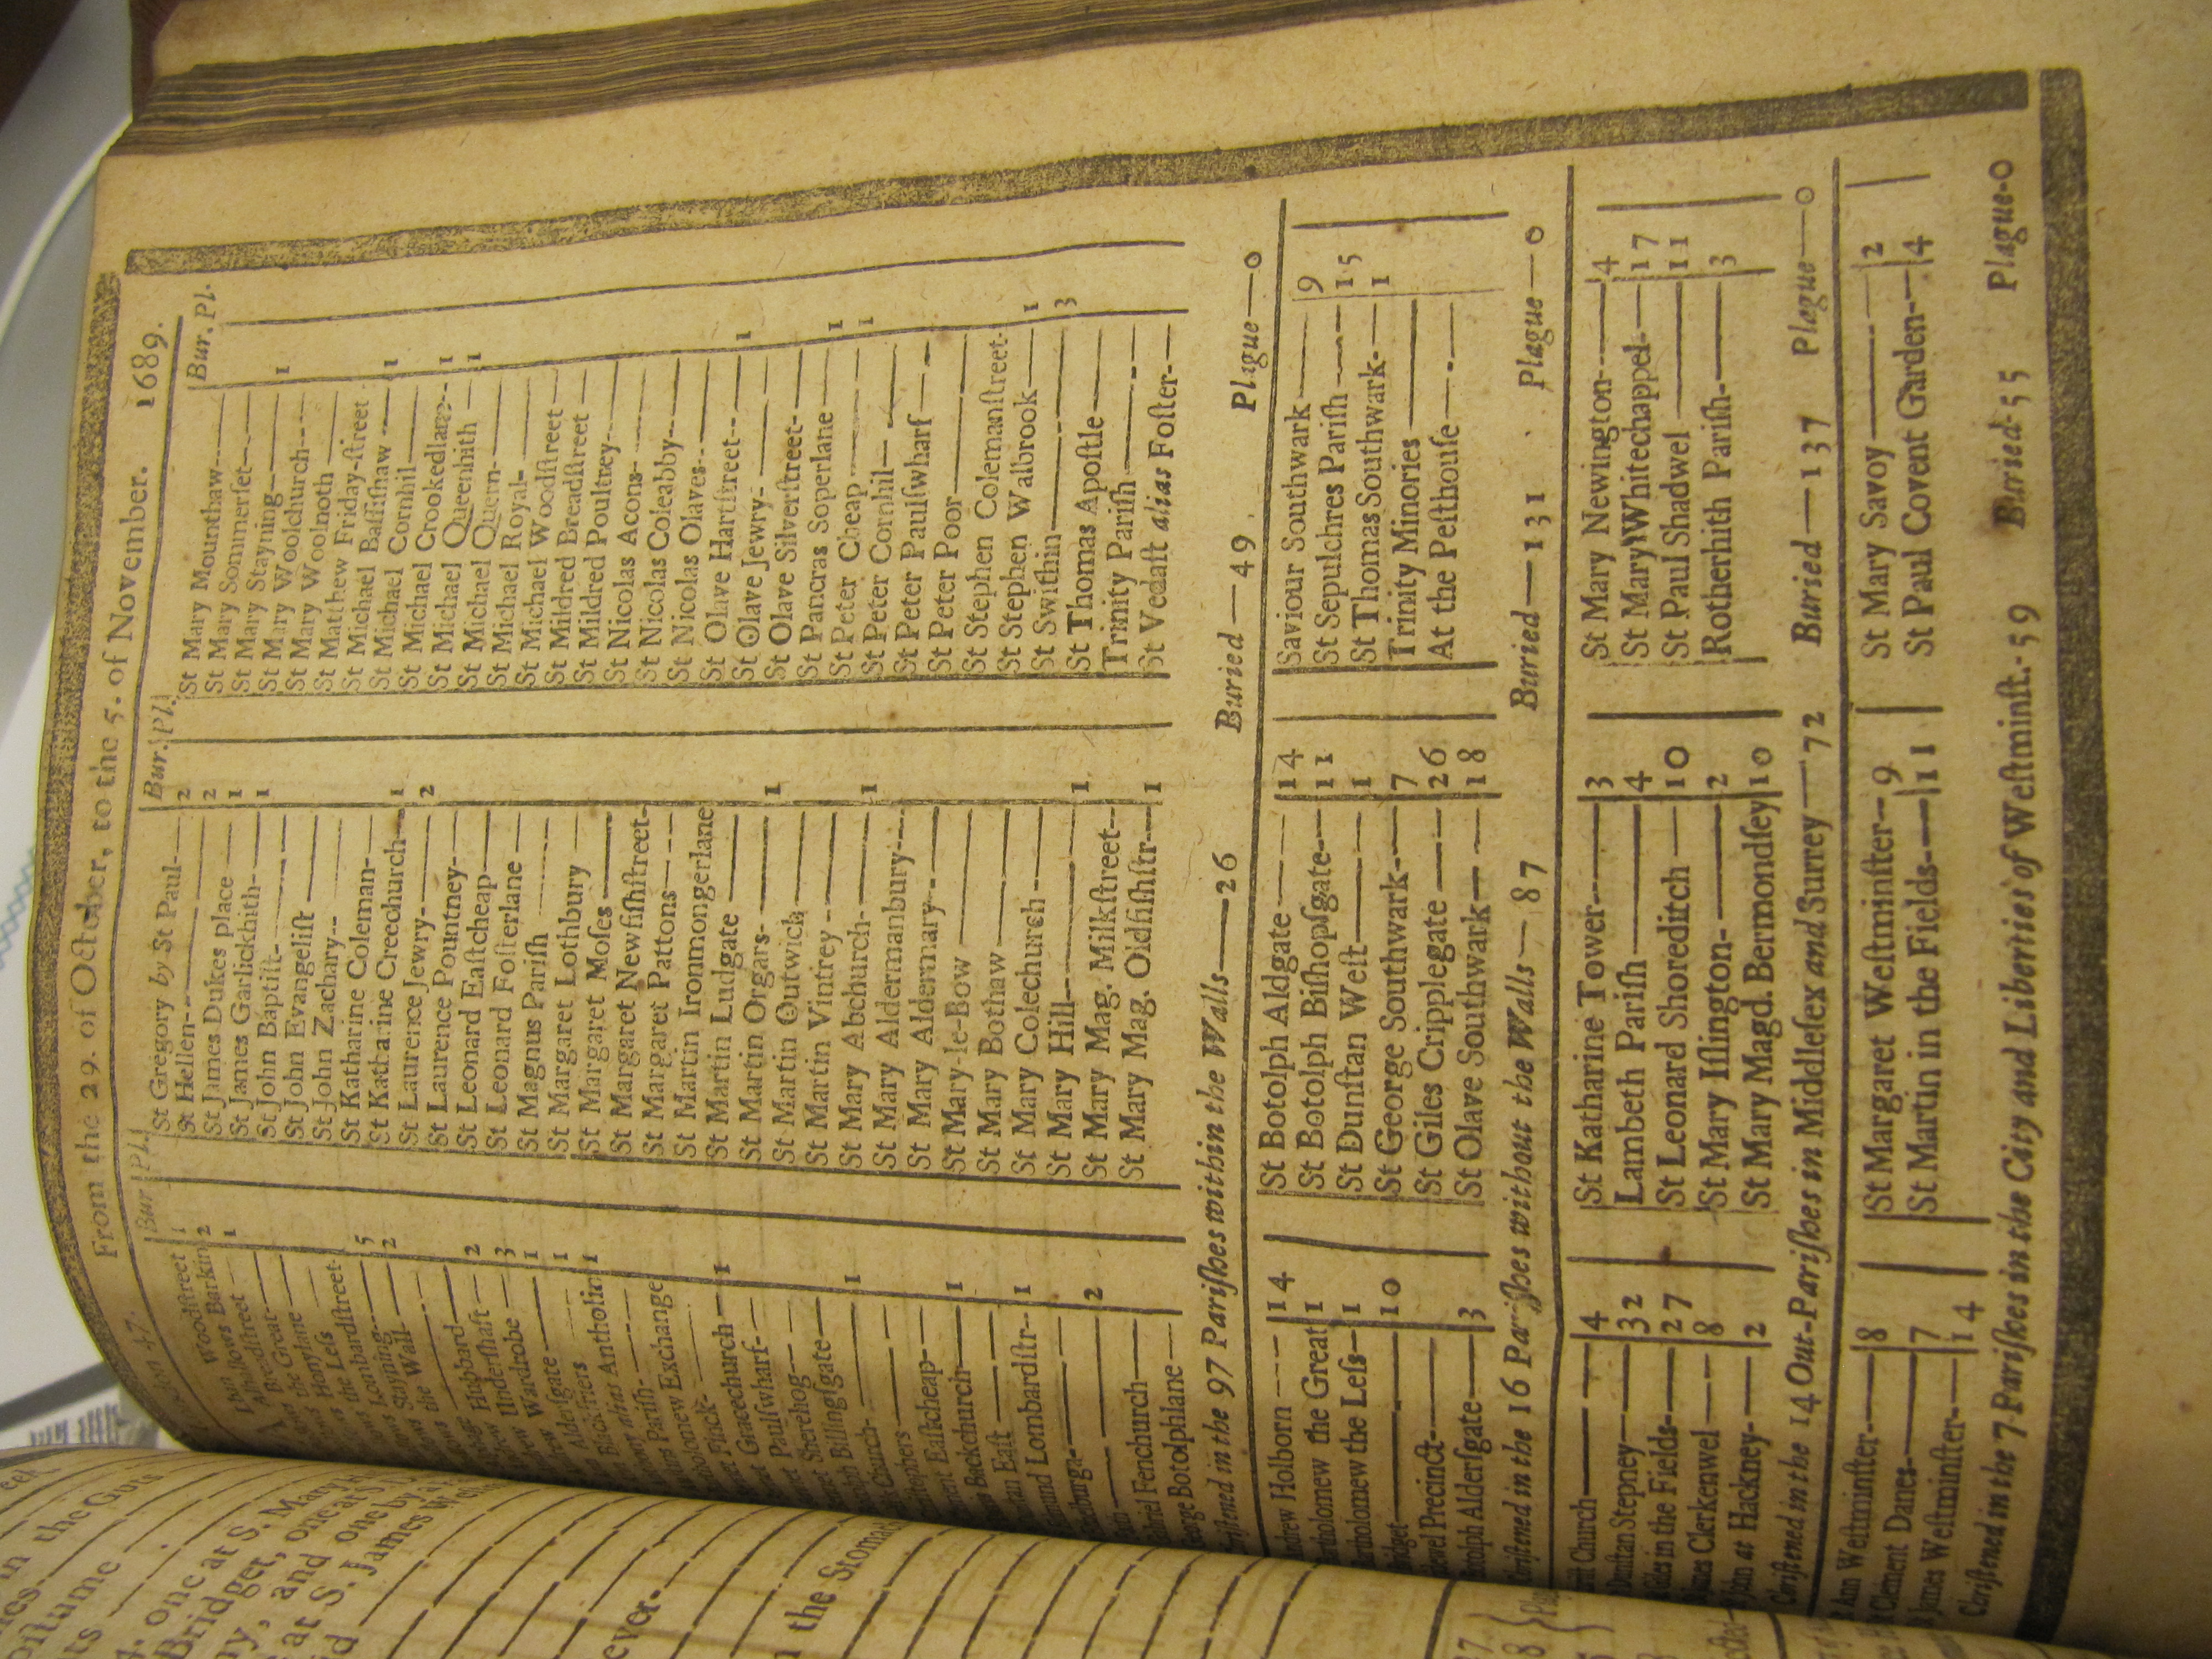 From the 29. of October, to the 5. of November. 1689.
Bur. Pl.
Woodſtreet 1
Barkin 2
Breadſtreet 1
Great
Honylane
Leſs
Lombardſtreet
Stayning 5
the Wall 2
Hubbard
Underſhaft 2
Wardrobe 3
Alderſgate 1
Blackfriers 1
alias Antholin 1
Pariſh
Exchange
Finck
Gracechurch 1
Paulſwharf
Sherehog
Billingſgate
Church 1
Eaſtcheap
Backchurch 1
Eaſt
Lombardſtr 1
2
Fenchurch
Botolphlane
Bur. Pl.
St Gregory by St Paul 2
St Hellen 2
St James Dukes place 1
St James Garlickhith 1
St John Baptiſt
St John Evangeliſt
St John Zachary
St Katharine Coleman
St Katharine Creechurch 1
St Laurence Jewry 2
St Laurence Pountney
St Leonard Eaſtcheap
St Leonard Foſterlane
St Magnus Pariſh
St Margaret Lothbury
St Margaret Moſes
St Margaret Newfiſhſtreet
St Margaret Pattons
St Martin Ironmongerlane
St Martin Ludgate
St Martin Orgars 1
St Martin Outwich
St Martin Vintrey
St Mary Abchurch 1
St Mary Aldermanbury
St Mary Aldermary
St Mary-le-Bow
St Mary Bothaw
St Mary Colechurch
St Mary Hill 1
St Mary Mag. Milkſtreet
St Mary Mag. Oldfiſhſtr 1
Bur. Pl.
St Mary Mounthaw
St Mary Sommerſet
St Mary Stayning
St Mary Woolchurch 1
St Mary Woolnoth
St Matthew Friday-ſtreet
St Michael Baſſiſhaw
St Michael Cornhil 1
St Michael Crookedlane
St Michael Queenhith 1
St Michael Quern 1
St Michael Royal
St Michael Woodſtreet
St Mildred Breadſtreet
St Mildred Poultrey
St Nicolas Acons
St Nicolas Coleabby
St Nicolas Olaves
St Olave Hartſtreet
St Olave Jewry 1
St Olave Silverſtreet
St Pancras Soperlane
St Peter Cheap 1
St Peter Cornhil 1
St Peter Paulſwharf
St Peter Poor
St Stephen Colemanſtreet
St Stephen Walbrook 1
St Swithin 3
St Thomas Apoſtle
Trinity Pariſh
St Vedaſt alias Foſter
in the 97 Pariſhes within the Walls—26 Buried—49 Plague—0
Holborn 14
the Great 1
the Leſs 1
10
Precinct
Alderſgate 3
St Botolph Aldgate 14
St Botolph Biſhopſgate 11
St Dunſtan Weſt 1
St George Southwark 7
St Giles Cripplegate 26
St Olave Southwark 18
Saviour Southwark 9
St Sepulchres Pariſh 15
St Thomas Southwark 1
Trinity Minories
At the Peſthouſe
Chriſtened in the 16 Pariſhes without the Walls—87 Buried—131 Plague—0
Church 4
Stepney 32
in the Fields 27
Clerkenwel 8
at Hackney 2
St Katharine Tower 3
Lambeth Pariſh 4
St Leonard Shoreditch 10
St Mary Iſlington 2
St Mary Magd. Bermondſey 10
St Mary Newington 4
St Mary Whitechappel 17
St Paul Shadwel 11
Rotherhith Pariſh 3
Chriſtened in the 14 Out-Pariſhes in Middleſex and Surrey—72 Buried—137 Plague—0
Ann Weſtminſter 8
Clement Danes 7
James Weſtminſter 14
St Margaret Weſtminſter 9
St Martin in the Fields 11
St Mary Savoy 2
St Paul Covent Garden 4
Chriſtened in the 7 Pariſhes in the City and Liberties of Weſtminſt. 59 Buried 55 Plague-0
in the Guts
one at S. Mary
Bridget, one at
and one by
at S. James
the Stomach